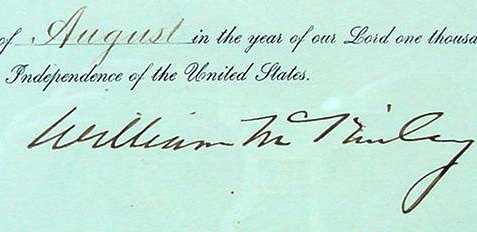 of August in the year of our Lord one thousa
Independence of the United States.
William McKinley